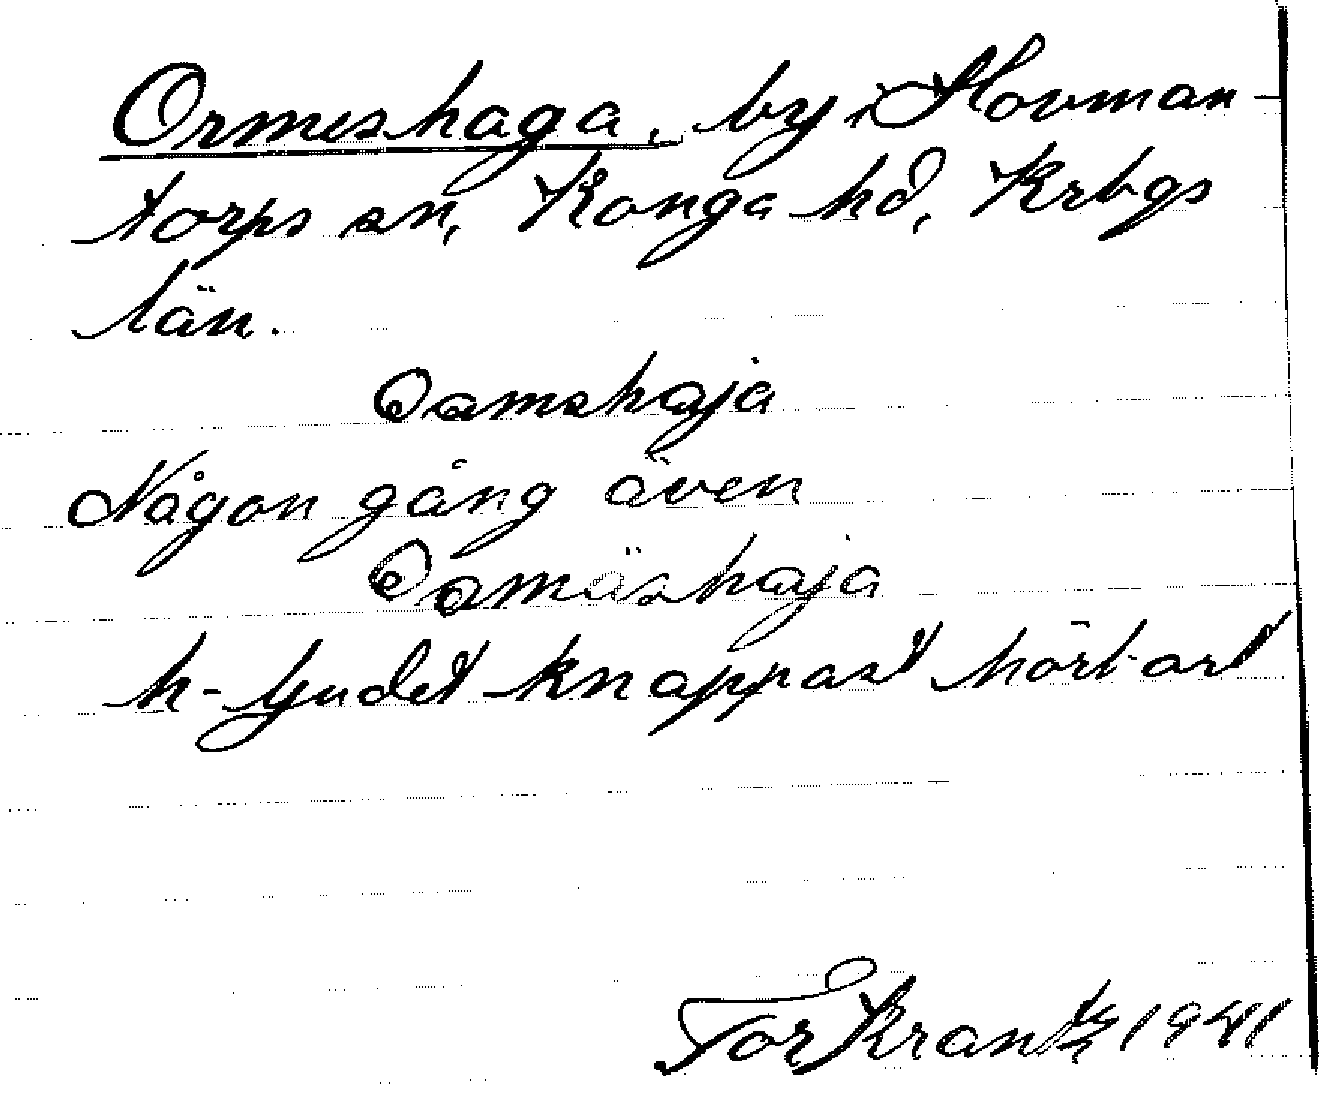 Ormeshaga, by i Hovman-
torps sn, Konga hd, Krbgs
län.
Oamshaja
Någon gång även
Oamäshaja
h-ljudet knappast hörbart
Tor Krantz 1941